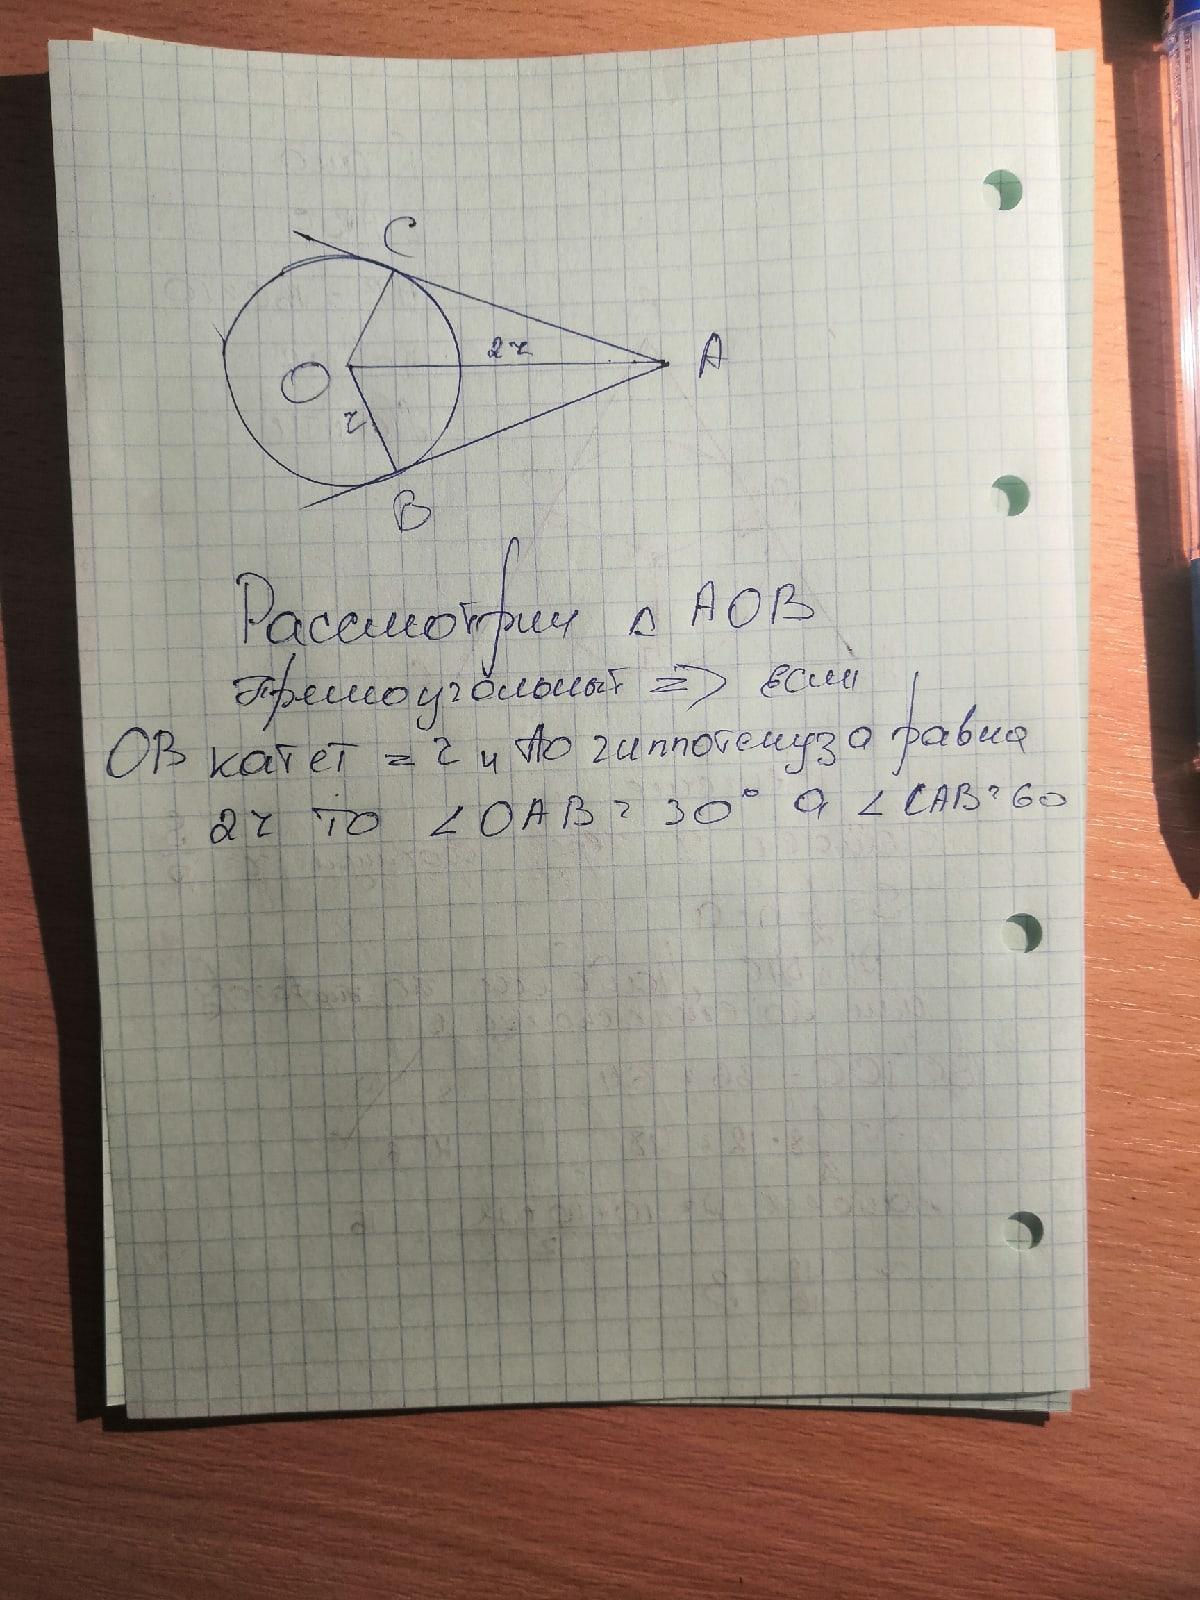 C
2r
A
O
r
B
Рассмотрим △ AOB
прямоугольный => если
OB катет = r и AO гиппотенуза равна
2r то ∠OAB = 30° а ∠CAB = 60